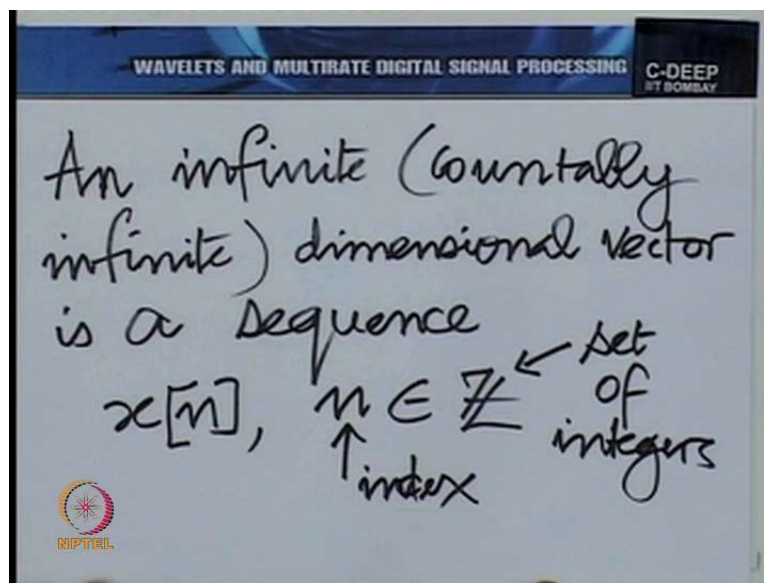 WAVELETS AND MULTIRATE DIGITAL SIGNAL PROCESSING
C-DEEP
IIT BOMBAY
An infinite (countally
infinite) dimensional vector
is a sequence
x[n], n ∈ ℤ ← set
of
integers
↑ index
NPTEL